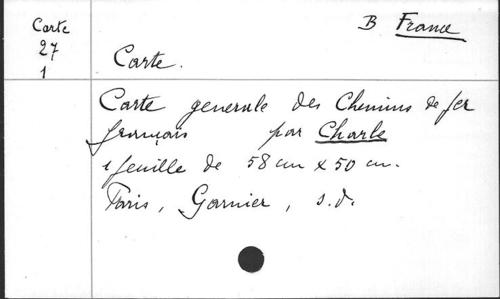 Carte
27
1
B France
Carte.
Carte generale des Chemins de fer
français par Charle
1 feuille de 58 cm x 50 cm.
Paris, Garnier, s.d.